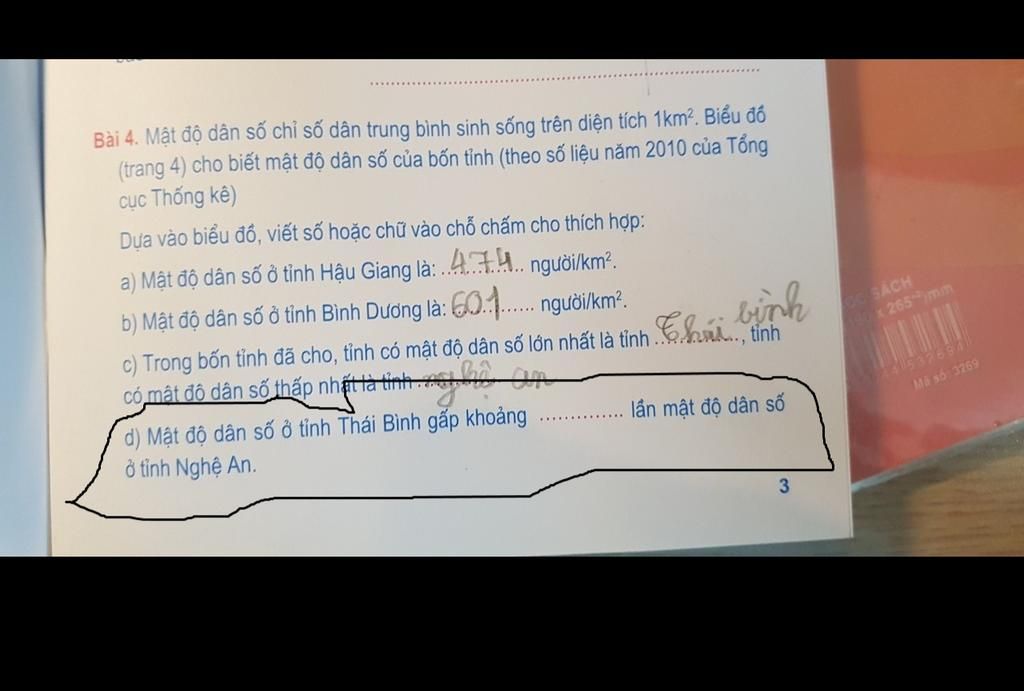 Bài 4. Mật độ dân số chỉ số dân trung bình sinh sống trên diện tích 1km². Biểu đồ
(trang 4) cho biết mật độ dân số của bốn tỉnh (theo số liệu năm 2010 của Tổng
cục Thống kê)
Dựa vào biểu đồ, viết số hoặc chữ vào chỗ chấm cho thích hợp:
a) Mật độ dân số ở tỉnh Hậu Giang là: ..474.. người/km².
b) Mật độ dân số ở tỉnh Bình Dương là: 601...... người/km².
c) Trong bốn tỉnh đã cho, tỉnh có mật độ dân số lớn nhất là tỉnh ..Thái bình.., tỉnh
có mật độ dân số thấp nhất là tỉnh ..nghệ an
d) Mật độ dân số ở tỉnh Thái Bình gấp khoảng .............. lần mật độ dân số
ở tỉnh Nghệ An.
3
SÁCH
x 265
mm
Mã số: 3269